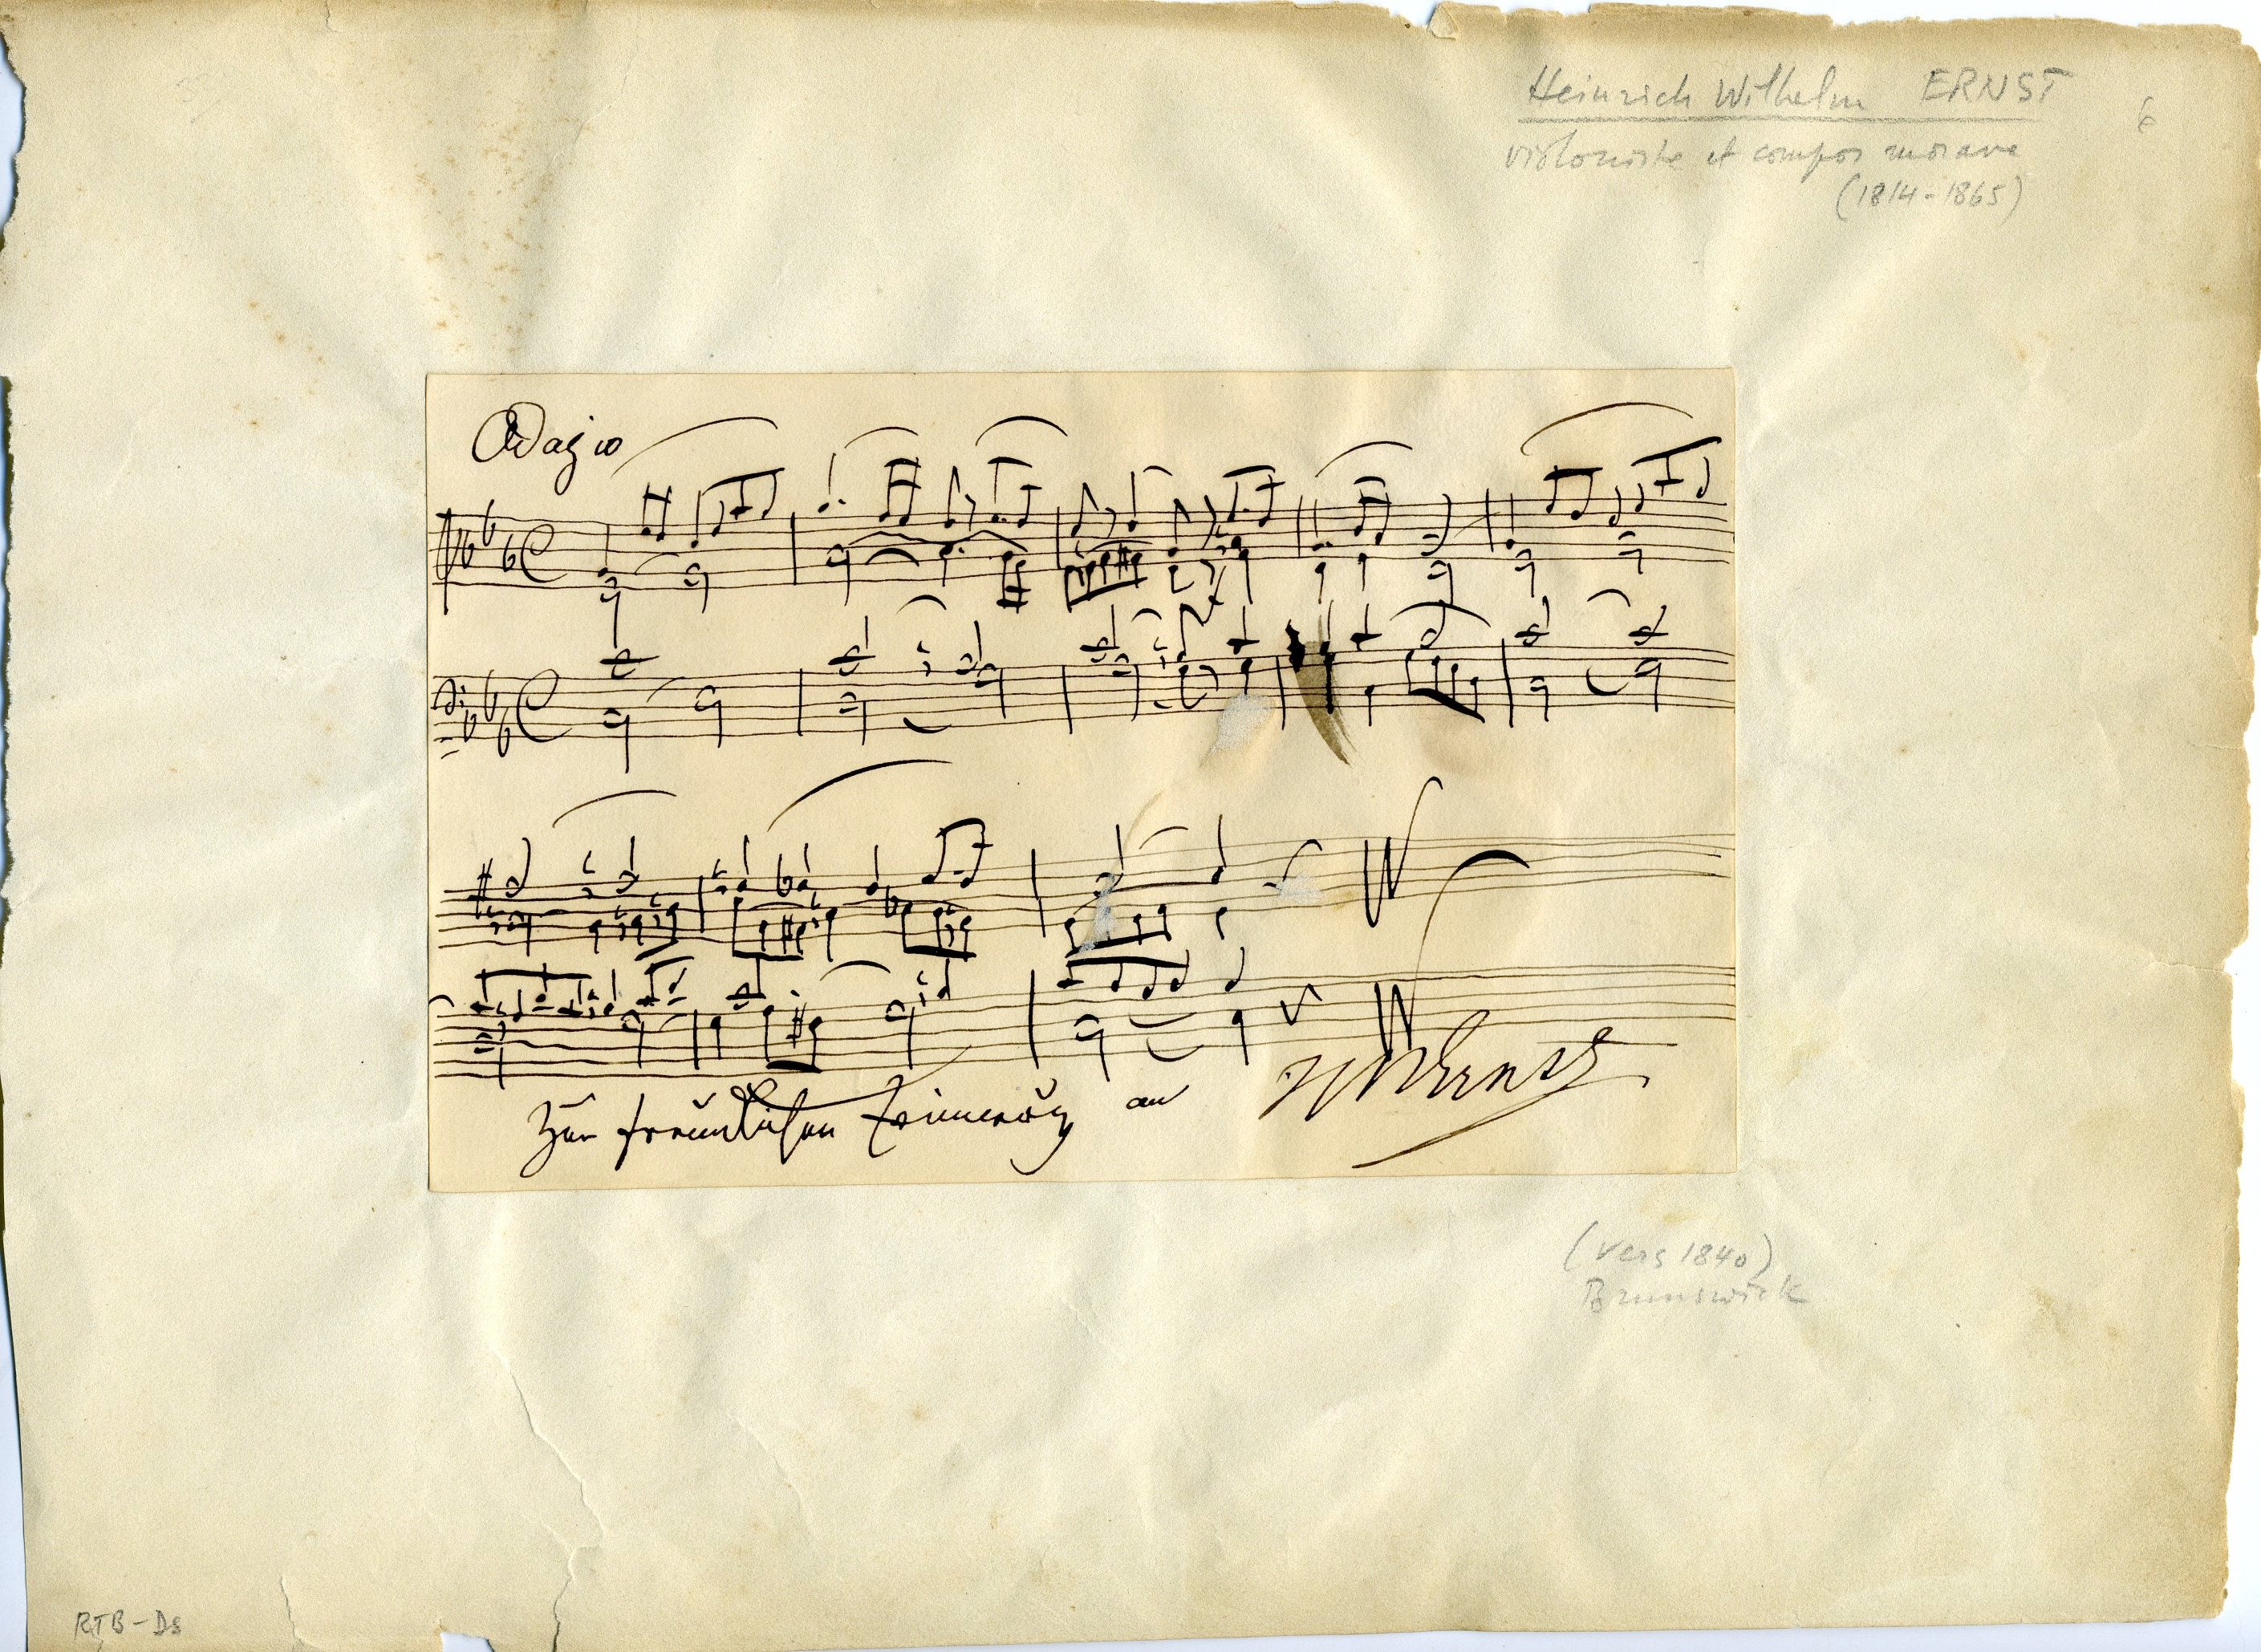 Heinrich Wilhelm ERNST
6
violoniste et compos morave
(1814-1865)
Adagio
Zur freundlichen Erinnerung an HWErnst
(vers 1840)
Brunswick
RTB-Ds